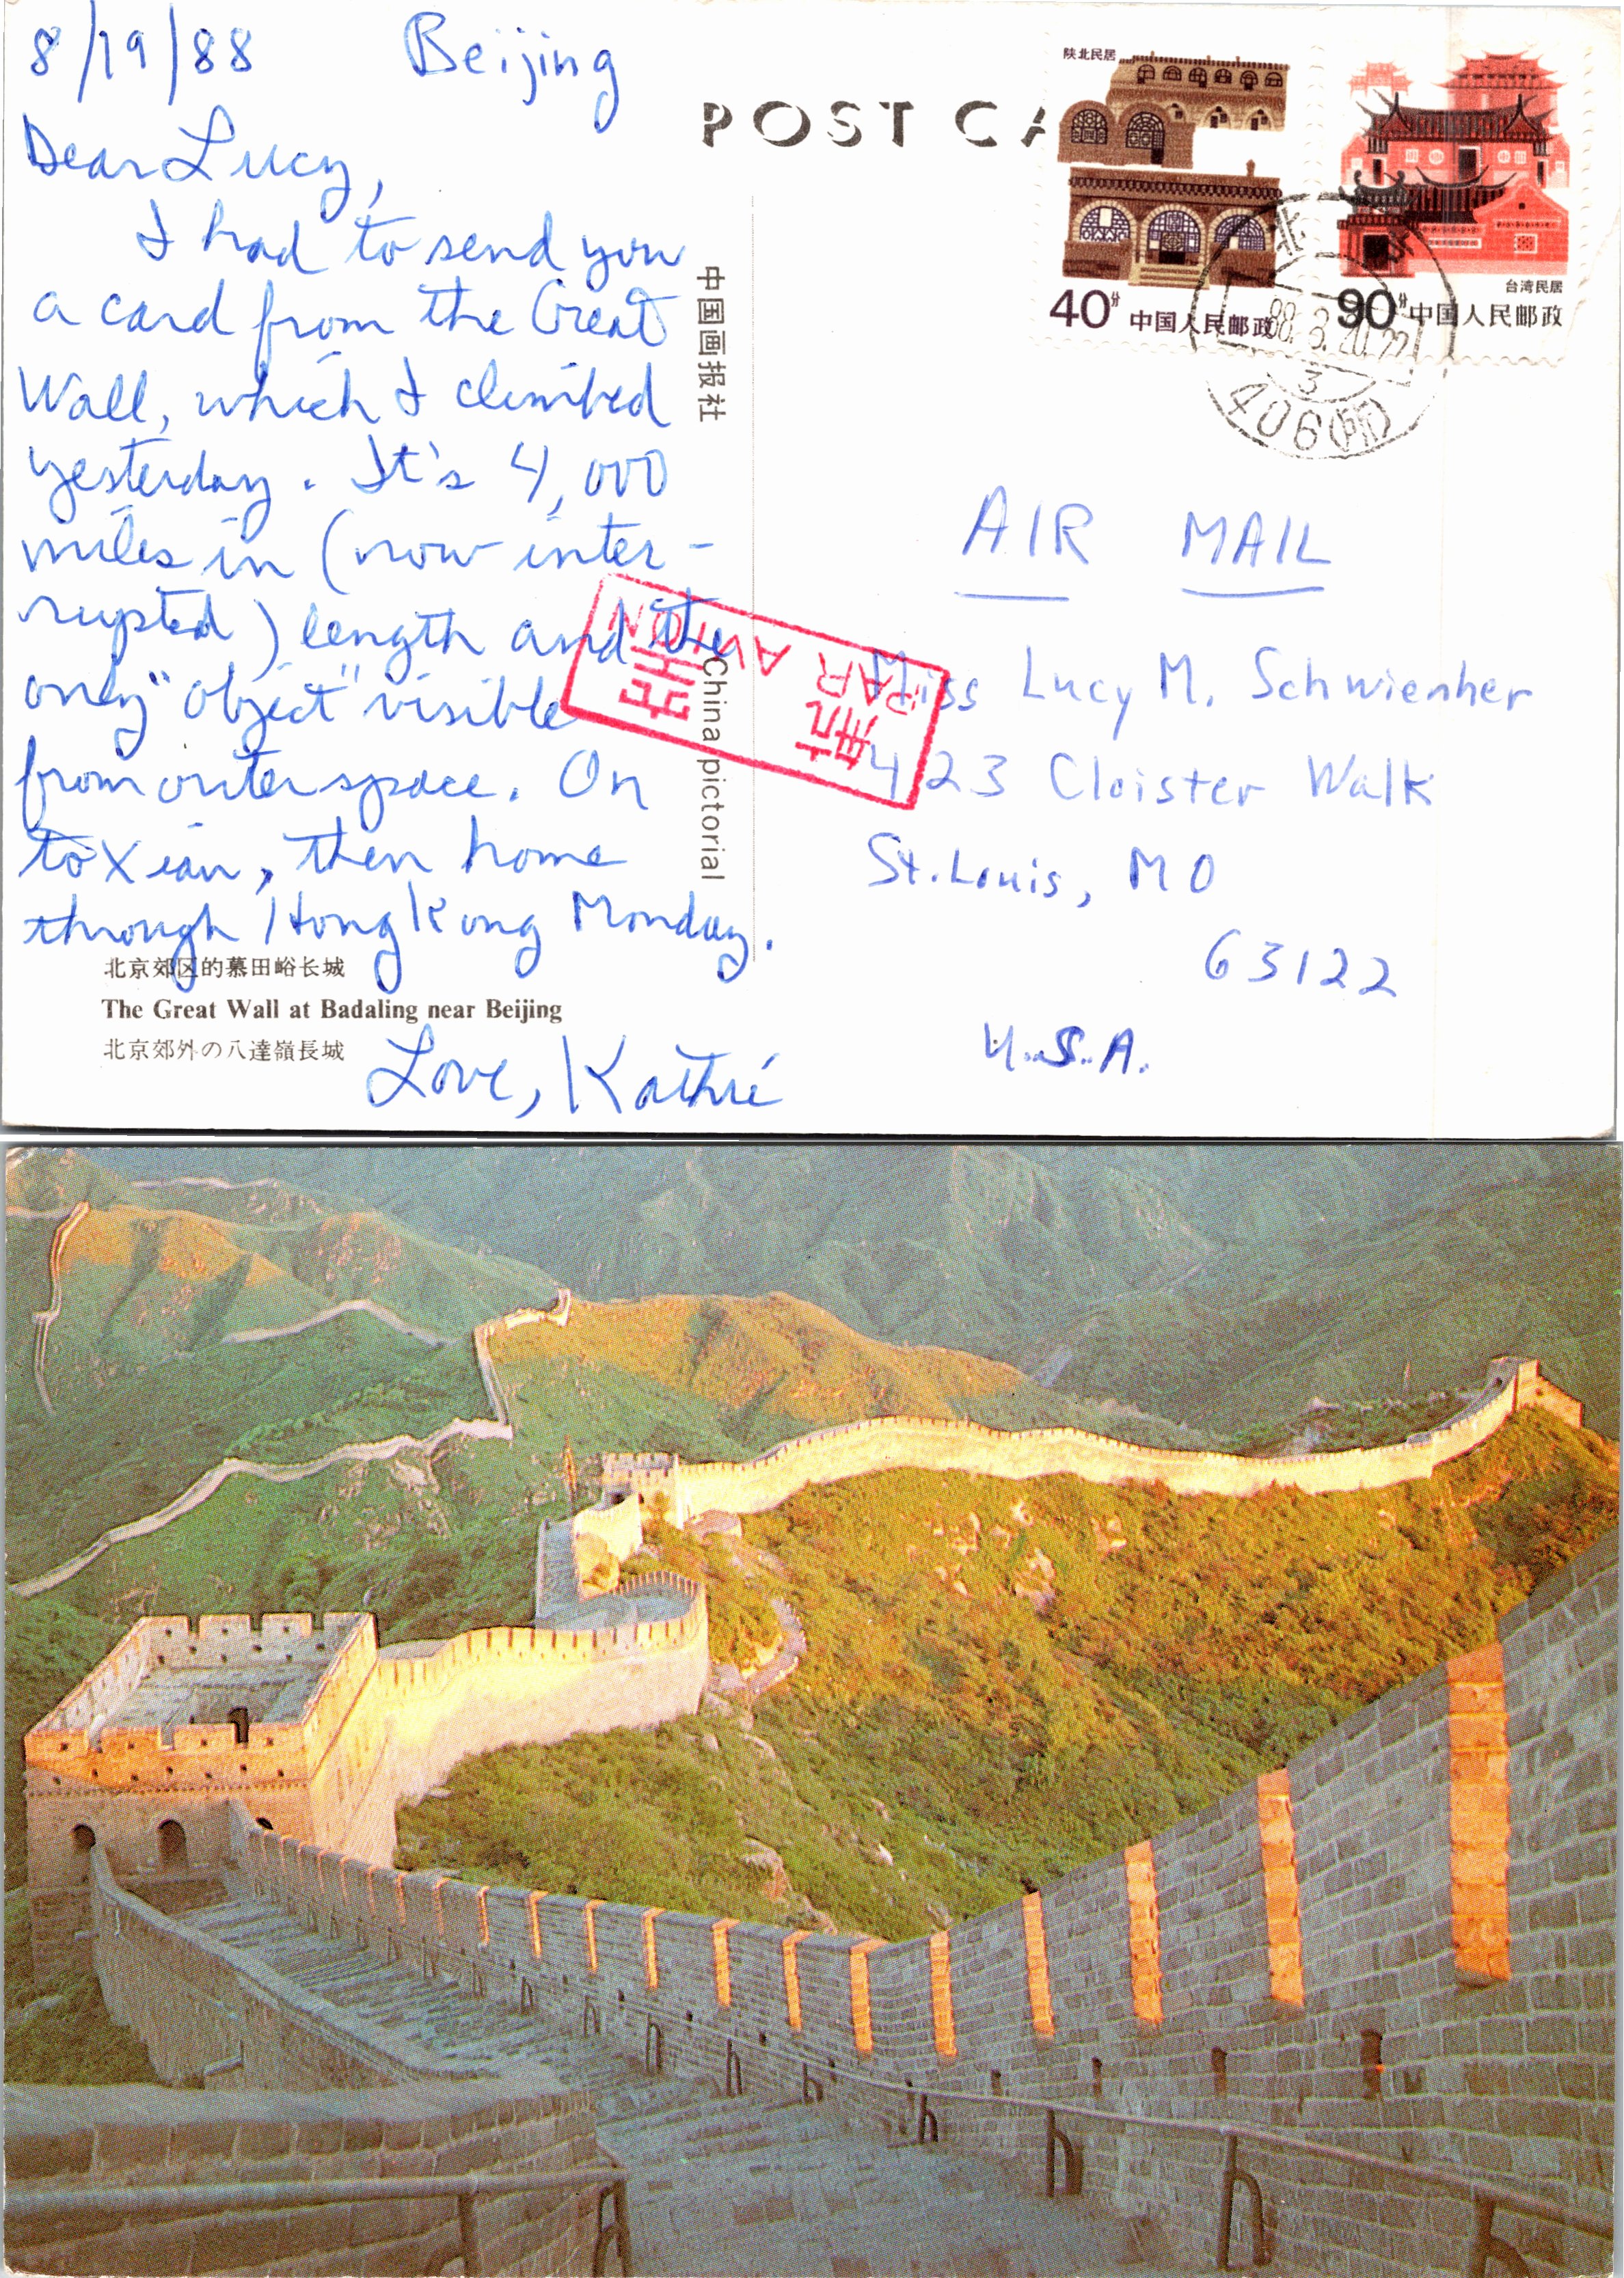 8/19/88 Beijing
Dear Lucy,
I had to send you
a card from the Great
Wall, which I climbed
yesterday. It's 4,000
miles in (now inter-
rupted) length and the
only "object" visible
from outer space. On
to Xian, then home
through Hong Kong Monday.
北京郊区的慕田峪长城
The Great Wall at Badaling near Beijing
北京郊外の八達嶺長城
Love, Kathié
POST CA
中国画报社
China pictorial
陕北民居
40分 中国人民邮政
台湾民居
90分 中国人民邮政
北京
88.8.20.22
3
406(所)
AIR MAIL
航空
PAR AVION
Miss Lucy M. Schwienher
423 Cloister Walk
St. Louis, MO
63122
U.S.A.